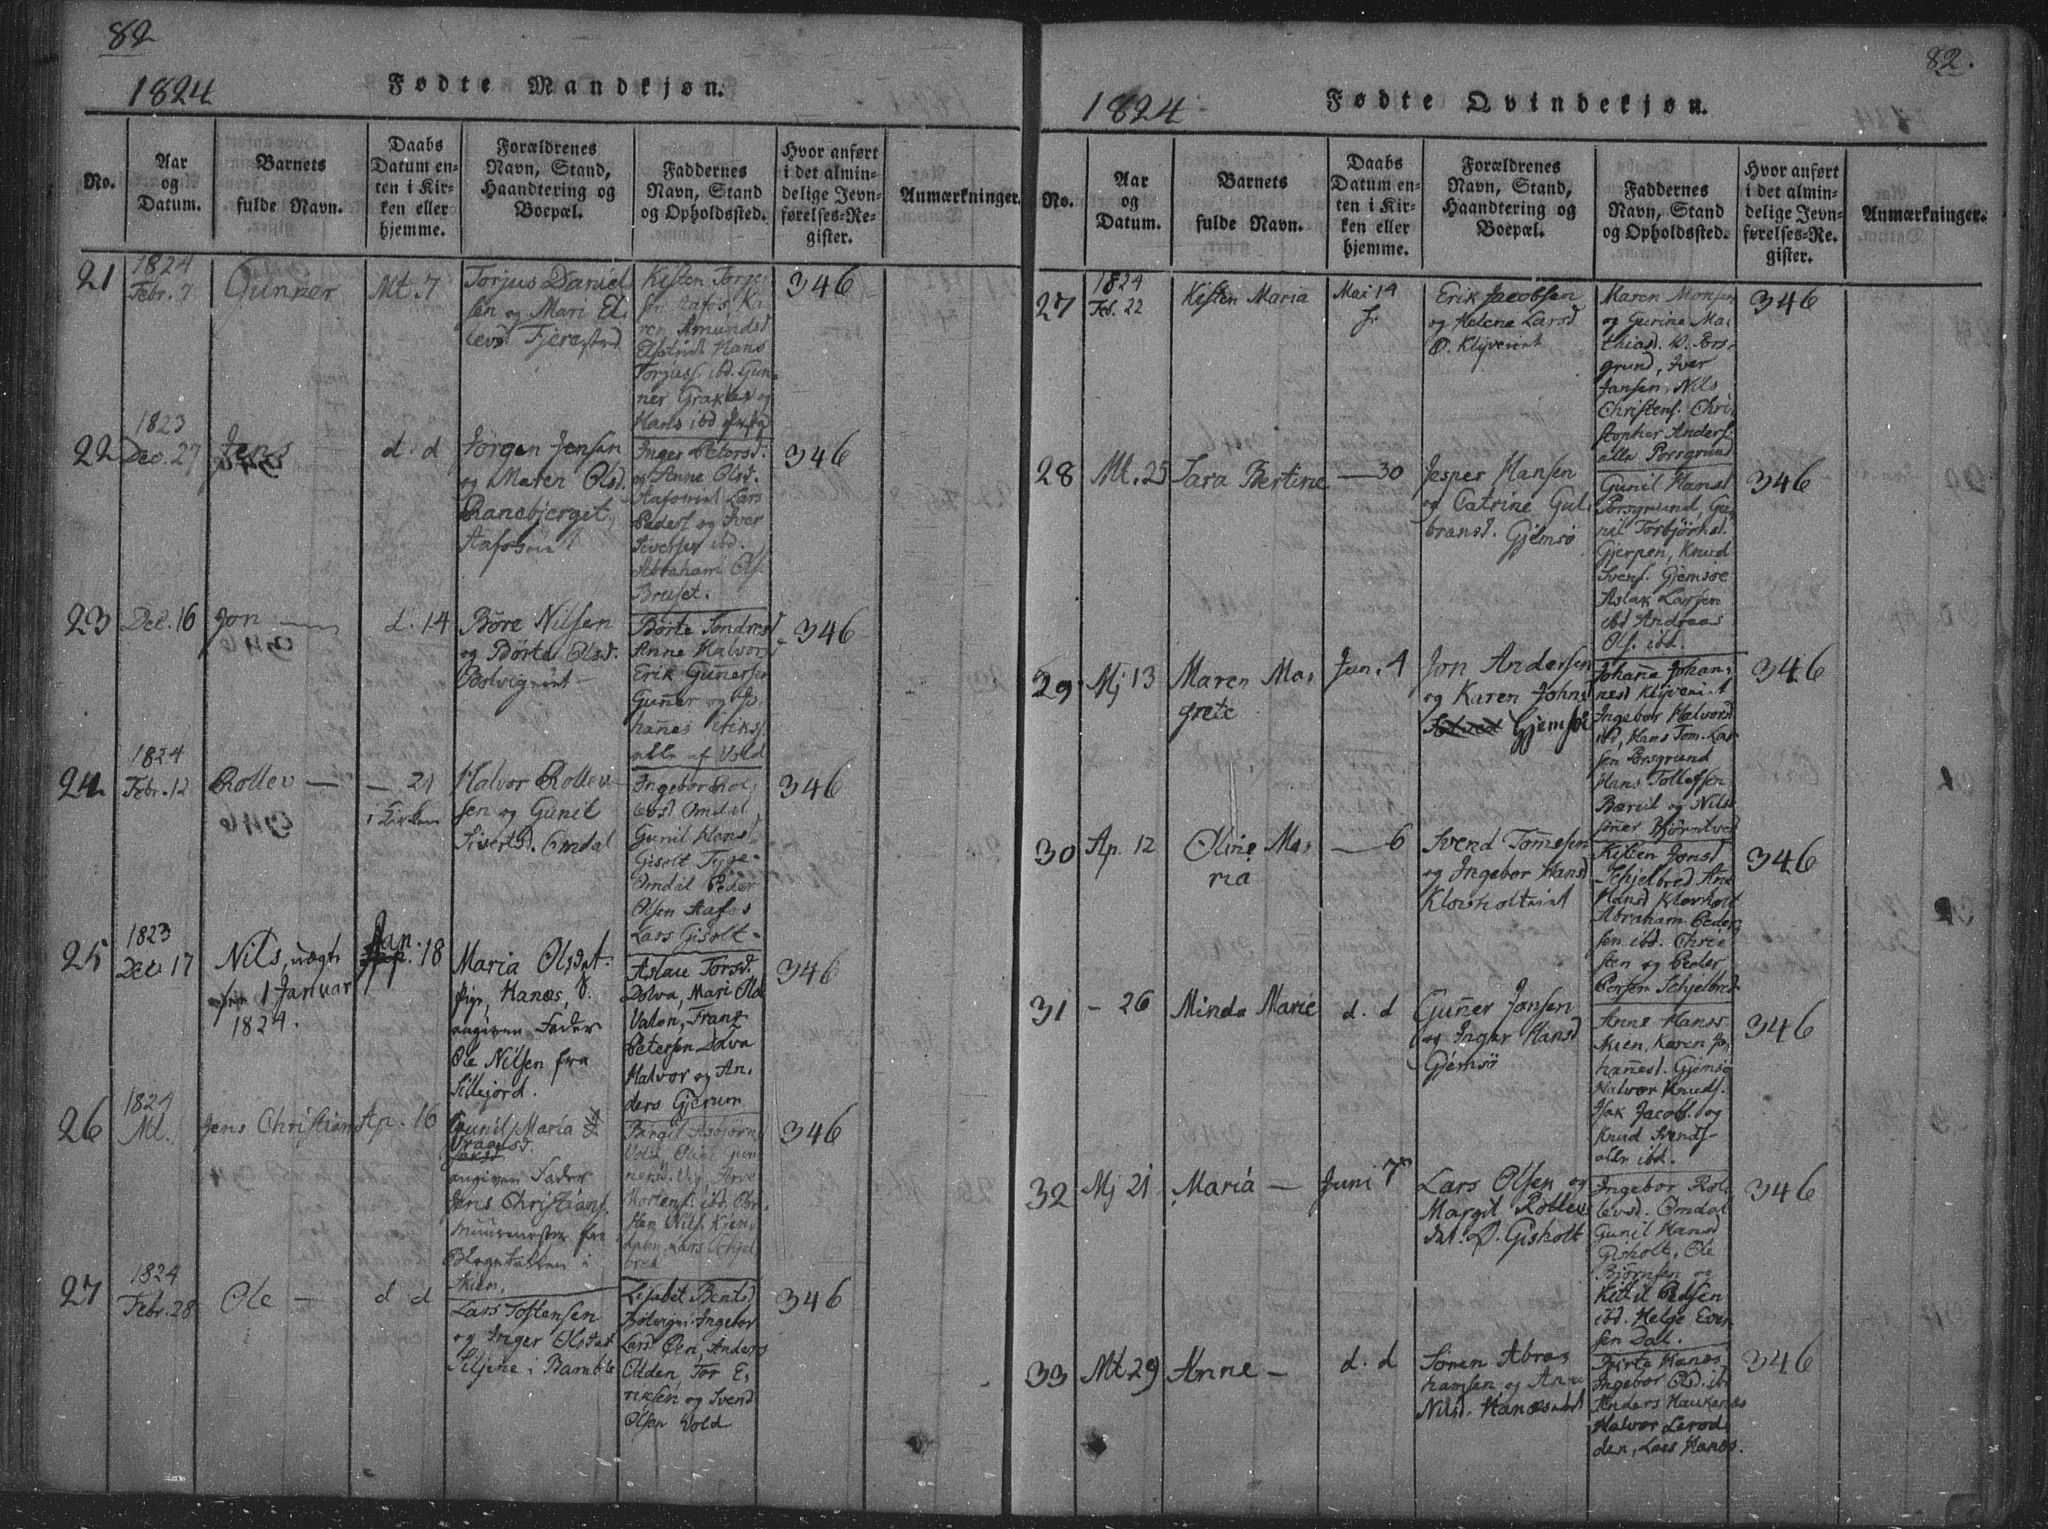 82
1824
Fødte Mandkjøn.
No.
Aar
og
Datum.
Barnets
fulde Navn.
Daabs
Datum en-
ten i Kir-
ken eller
hjemme.
Forældrenes
Navn, Stand,
Haandtering og
Boepæl.
Faddernes
Navn, Stand
og Opholdssted.
Hvor anført
i det almin-
delige Jevn-
førelses-Re-
gister.
Anmærkninger.
21
1824
Febr. 7
Gunner
Mt. 7
Torjus Daniel
sen og Mari El-
levsd
Kisten Torge
ren Amundsd
Hans
Torjuss. ibd. Gun-
ner
Hans ibd
346
22
1823
Dec. 27
Jens
d. d
Jørgen Jensen
og Maren Olsd.
Ranebjerget,
Inger Petersd.
og Anne Olsd.
Lars
Peders og Iver
Sivertsen ibd.
Abraham Ols.
Bruset.
346
23
Dec. 16
Jon
d. 14
Børe Nilsen
og Børte Olsd.
Børte Sondresd
Anne Halvors
Erik Gunersen
Gunner og Jo-
hannes Eriks.
alle af Vold
346
24
1824
Febr. 12
Rollev —
— 21
i Kirken
Halvor Rollev
sen og Gunil
Sivertsd. Omdal
Ingebor Rol
levsd Omdal
Gunil Hans
Gisolt Tyge
Omdal Peder
Olsen Aafos
Lars Gisolt
346
25
1823
Dec. 17
Nils, uægte
1 Januar
1824.
Jan. 18
Maria Olsdat.
pige, Hanæs,
angiven Fader
Ole Nilsen fra
Sillejord.
Aslau Torsd.
Dolva, Mari Ols
Valon, Franz
Petersen Dolva
Halvor og An-
ders Gjerum
346
26
1824
Mt.
Jens Christian
Ap. 16
Gunil Maria
angiven Fader
Jens Christians.
Muurmester fra
i
Skien.
Birgit Asbjørns
Vold,
Mortens. ibd.
sten Nils.
Lars Schjel-
bred
346
27
1824
Febr. 28
Ole —
d d
Lars Tostensen
og Inger Olsdat
Siljene i Bamble
Lisabet Bents
Bolvign: Ingebor
Lars Oen, Anders
Olden, Tor E-
riksen og Svend
Olsen Vold
346
82.
1824
Fødte Qvindekjøn.
No.
Aar
og
Datum.
Barnets
fulde Navn.
Daabs
Datum en-
ten i Kir-
ken eller
hjemme.
Forældrenes
Navn, Stand,
Haandtering og
Boepæl.
Faddernes
Navn, Stand
og Opholdssted.
Hvor anført
i det almin-
delige Jevn-
førelses-Re-
gister.
Anmærkninger.
27
1824
Feb. 22
Kisten Maria
Mai 14
Erik Jacobsen
og Helene Larsd
Maren Monsen
og Gurine Ma-
thiasd. V. Pors-
grund, Iver
Jansen, Nils
Christens. Chri-
stopher Anders.
alle Porsgrund
346
28
Mt. 25
Sara Bertine
— 30
Jesper Hansen
og Catrine Gul-
bransd. Gjemsø
Gunil Hansd
Porsgrund, Gu-
nil Torbjørnsd.
Gjerpen, Knud
Svens. Gjemsøe
Aslak Larsen
ibd Andreas
Ols. ibd.
346
29
Mj 13
Maren Mar
grete
Jun. 4
Jon Andersen
og Karen Johnsd
Gjemsøe
Johanne Johan-
nesd
Ingebor Halvorsd
ibd, Hans Tom. Lar
sen Porsgrund
Hans Tollefsen
Bærvil og Nils
Bjørntved
346
30
Ap. 12
Oline Ma-
ria
— 6
Svend Tommesen
og Ingebor Hansd
Kisten Jonsd
Schjelbred Ane
Hansd Klovholt
Abraham Peder
sen ibd. Chris
sten og Peder
Persen Schjelbred
346
31
— 26
Minda Marie
d. d
Gunner Jonsen
og Inger Hansd
Gjemsø
Anne Hans
Skien, Karen Jo-
hannesd. Gjemsø
Halvor Knuds.
Isak Jacobs. og
Knud Svends.
alle ibd.
346
32
Mj 21
Maria —
Juni 7
Lars Olsen og
Margit Rollev
dat. D. Gisholt
Ingebor Rol-
levsd. Omdal
Gunil Hansd
Gisholt, Ole
Bjørnsen og
Kittil Pedsen
ibd. Helge Ever
sen Dal.
346
33
Mt. 29
Anne —
d. d
Sören Abra-
hamsen og Anne
Nilsd.
Birte Hanæs
Ingebor Olsd. ibd
Anders Haukenæs
Halvor Lerod
den, Lars Hanæs.
346